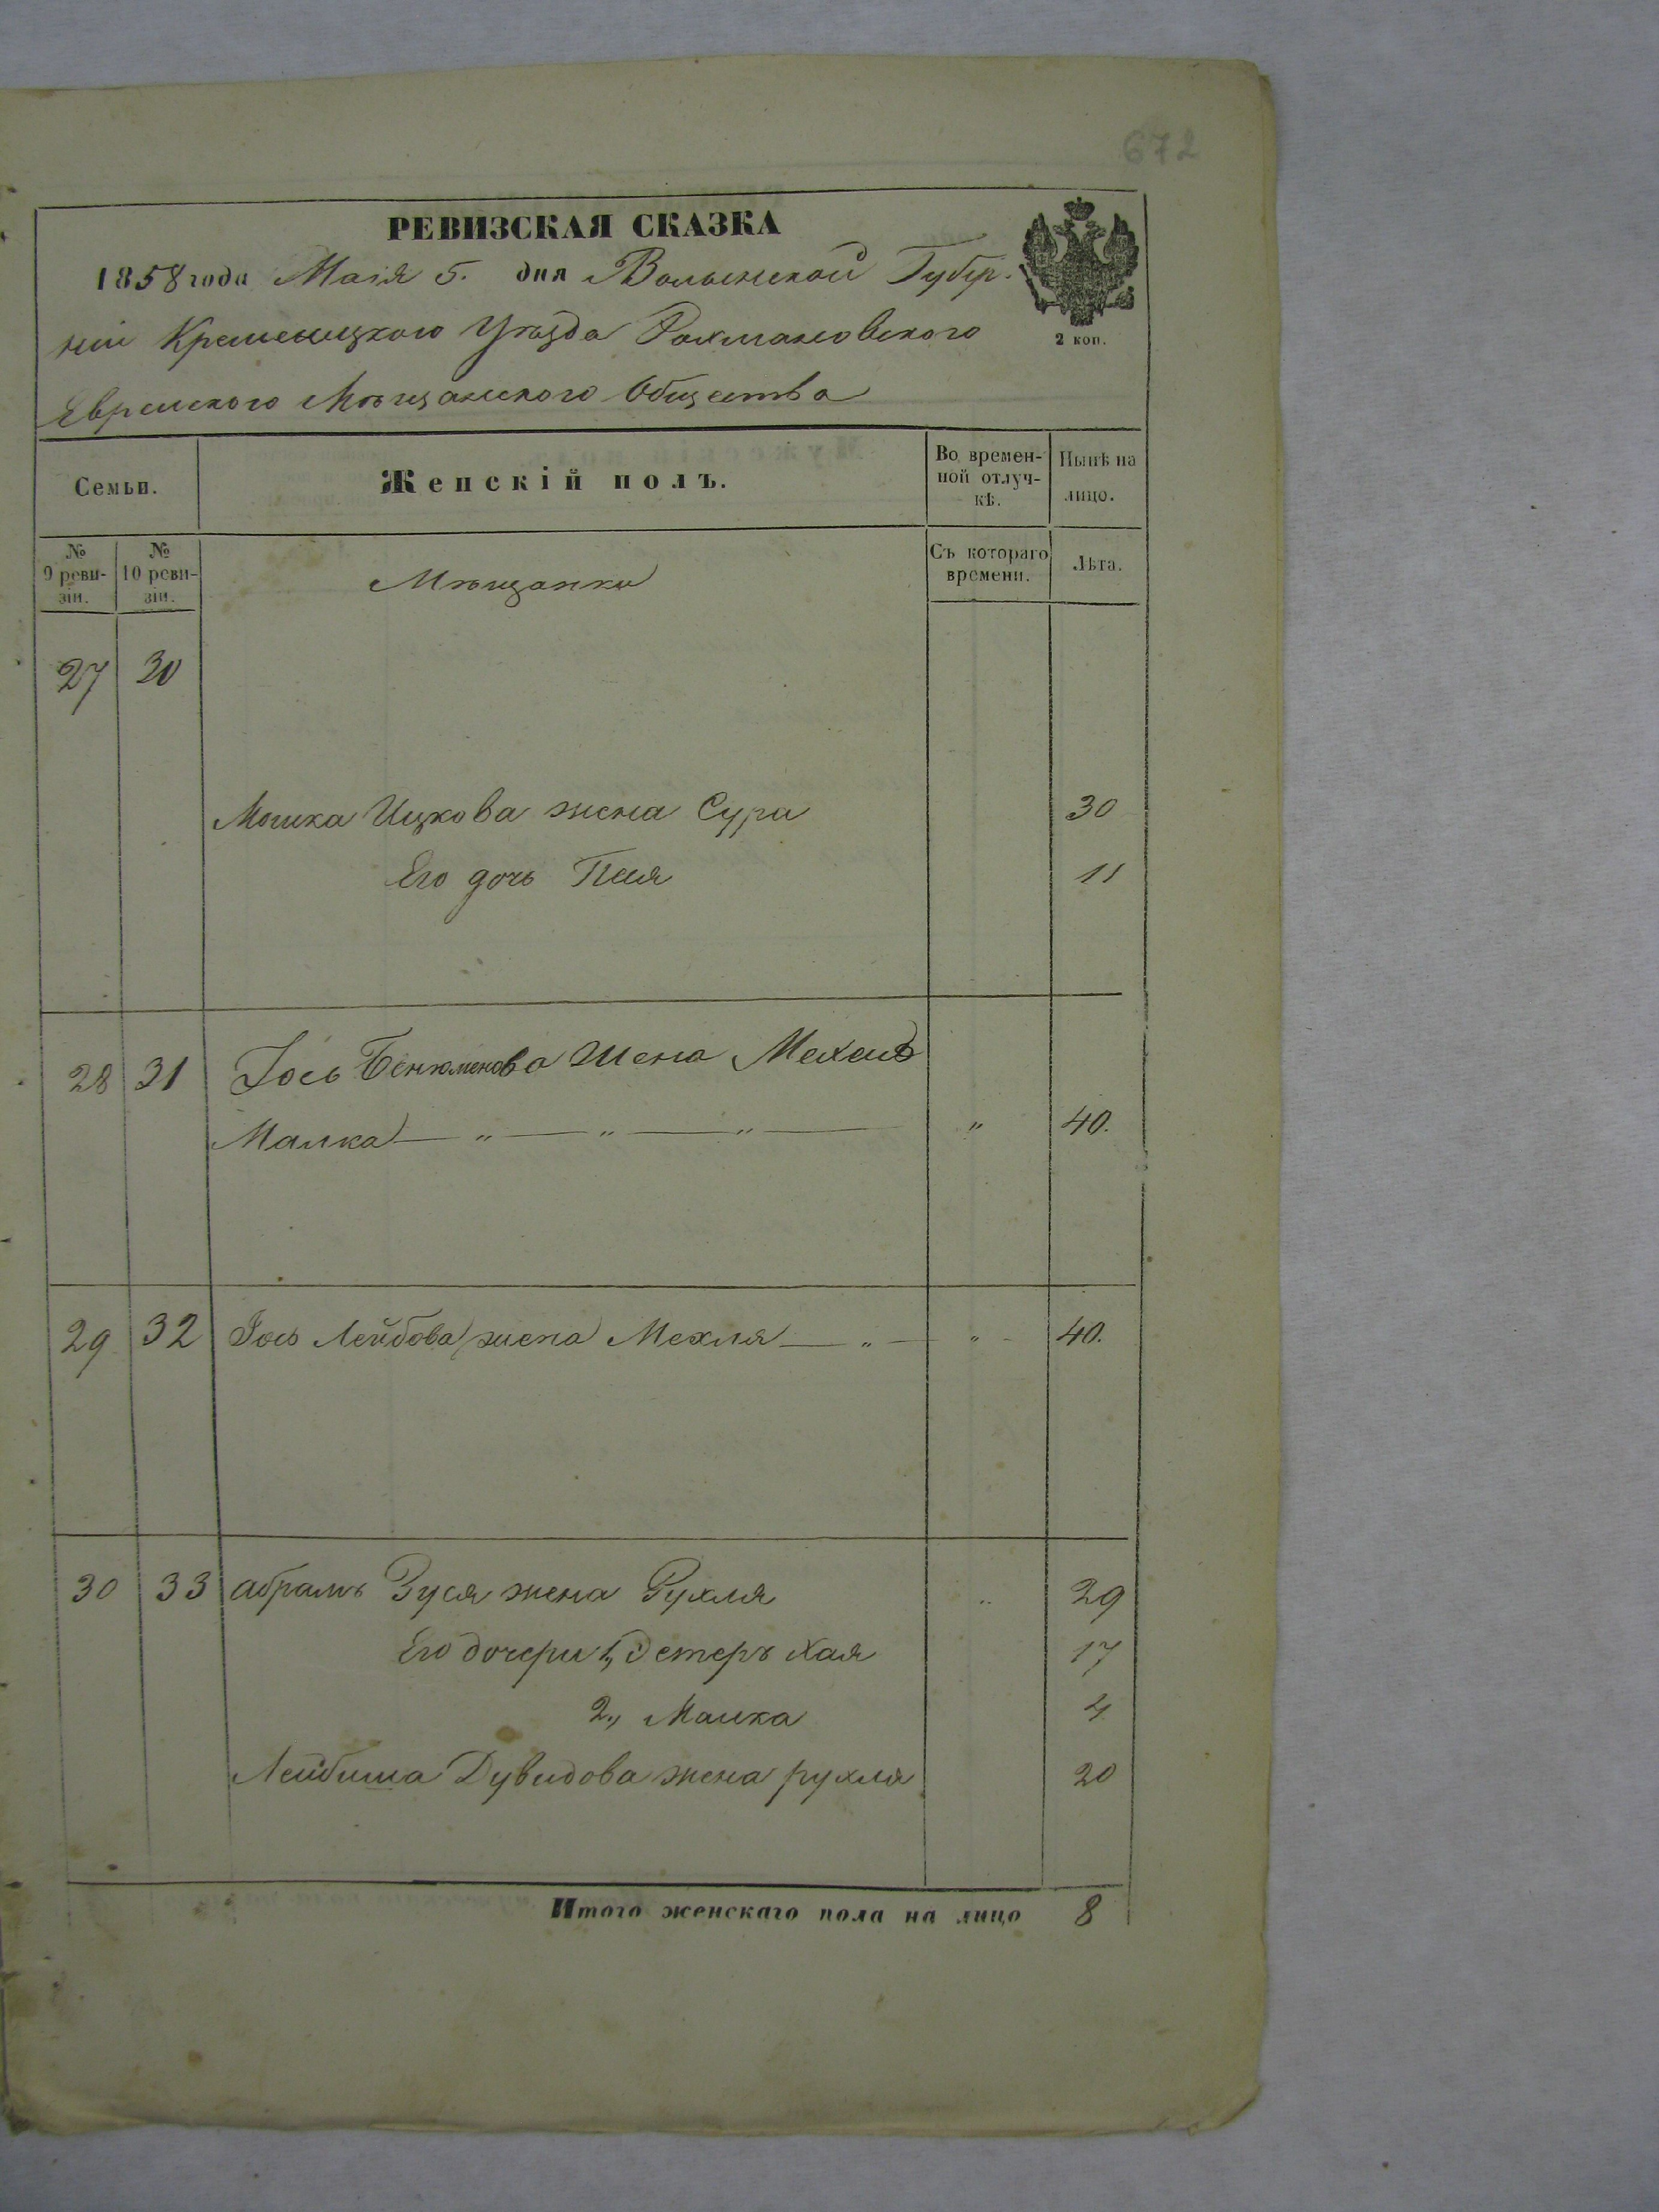 672
РЕВИЗСКАЯ СКАЗКА
1858 года Маія 5. дня Волынской Губер-
ніи Кременецкого Уѣзда Рахмановского
Еврейского Мѣщанского Общества
2 коп.
Семьи. Женскій полъ. Во времен- Нынѣ на
ной отлуч- лицо.
кѣ.
№ № Съ котораго Лѣта.
9 реви- 10 реви- времени.
зіи. зіи.
Мѣщанки
27 30
Мошка Ицкова жена Сура 30
Его дочь Песя 11
28 31 Іось Бенюменова Жена
Малка — " — " — " — " 40.
29 32 Іось Лейбова жена Мехля — " — " - 40.
30 33 абрамъ Зуся жена Рухля .. 29
Его дочери 1, Эстеръ Хая 17
2., Малка 4
Лейбиша Дувидова жена рухля 20
Итого женскаго пола на лицо 8